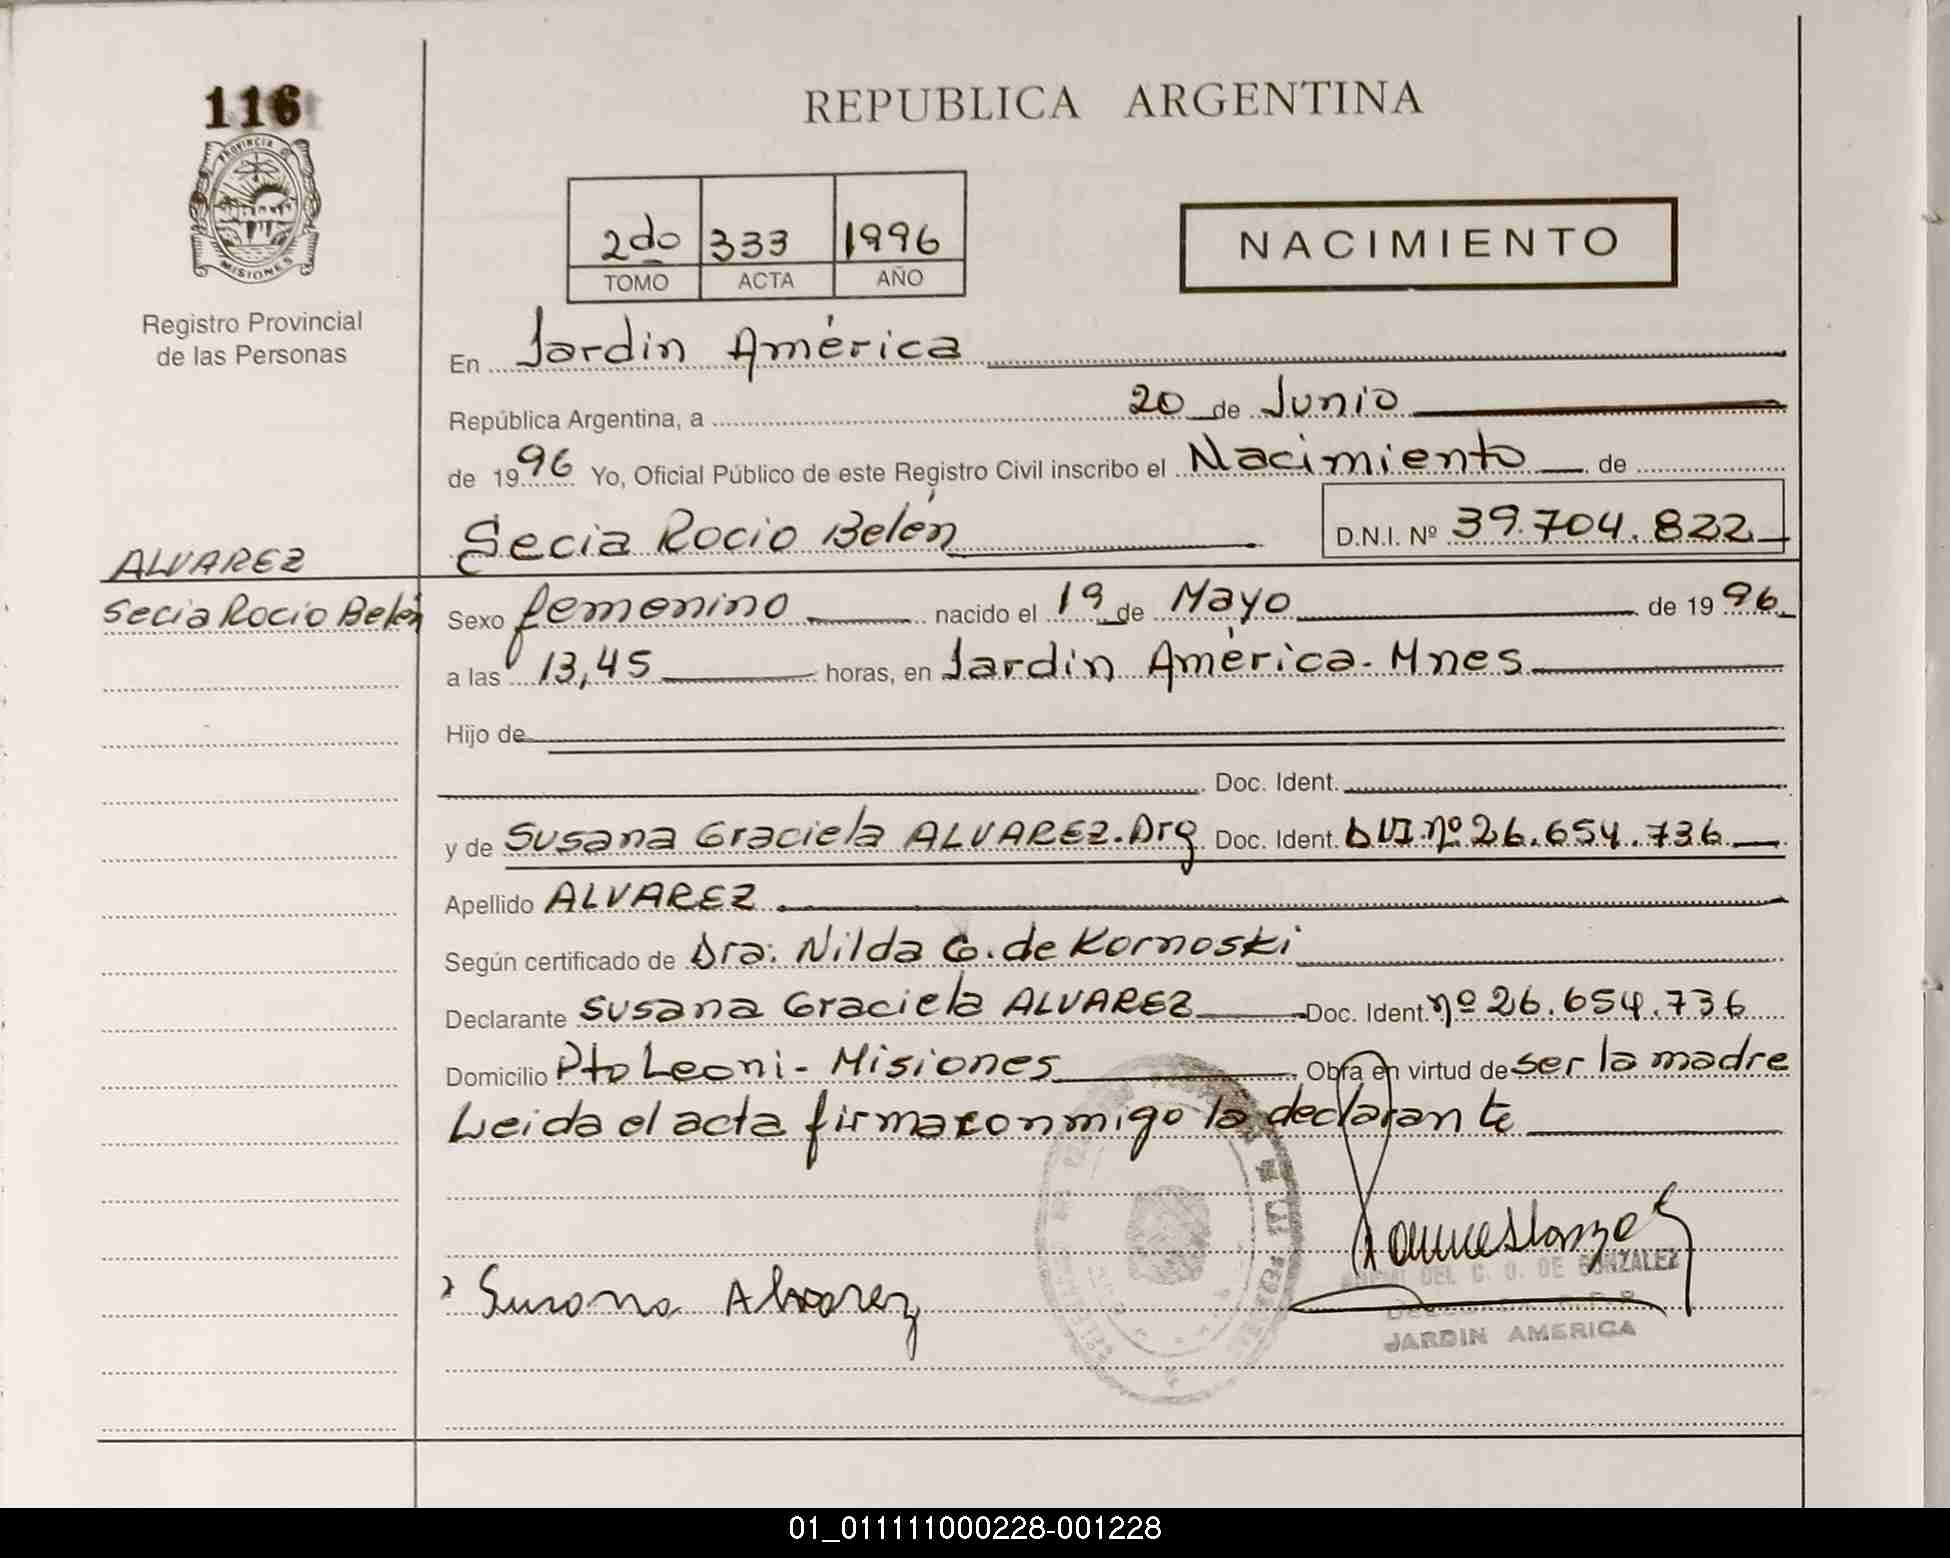 116
PROVINCIA DE
MISIONES
Registro Provincial
de las Personas
REPUBLICA ARGENTINA
2do 333 1996
TOMO ACTA AÑO
NACIMIENTO
En Jardin América
República Argentina, a 20 de Junio
de 1996 Yo, Oficial Público de este Registro Civil inscribo el Nacimiento de
Secia Rocio Belén D.N.I. Nº 39.704.822
ALVAREZ
Secia Rocio Belén
Sexo femenino nacido el 19 de Mayo de 1996
a las 13,45 horas, en Jardin América. Mnes
Hijo de
Doc. Ident.
y de Susana Graciela ALVAREZ. Arg Doc. Ident. DNI nº 26.654.736
Apellido ALVAREZ
Según certificado de Dra: Nilda G. de Kornoski
Declarante Susana Graciela ALVAREZ Doc. Ident. nº 26.654.736
Domicilio Pto Leoni - Misiones Obra en virtud de ser la madre
Leida el acta firma conmigo la declarante
Susana Alvarez
DEL C. O. DE GONZALEZ
JARDIN AMERICA
01_011111000228-001228